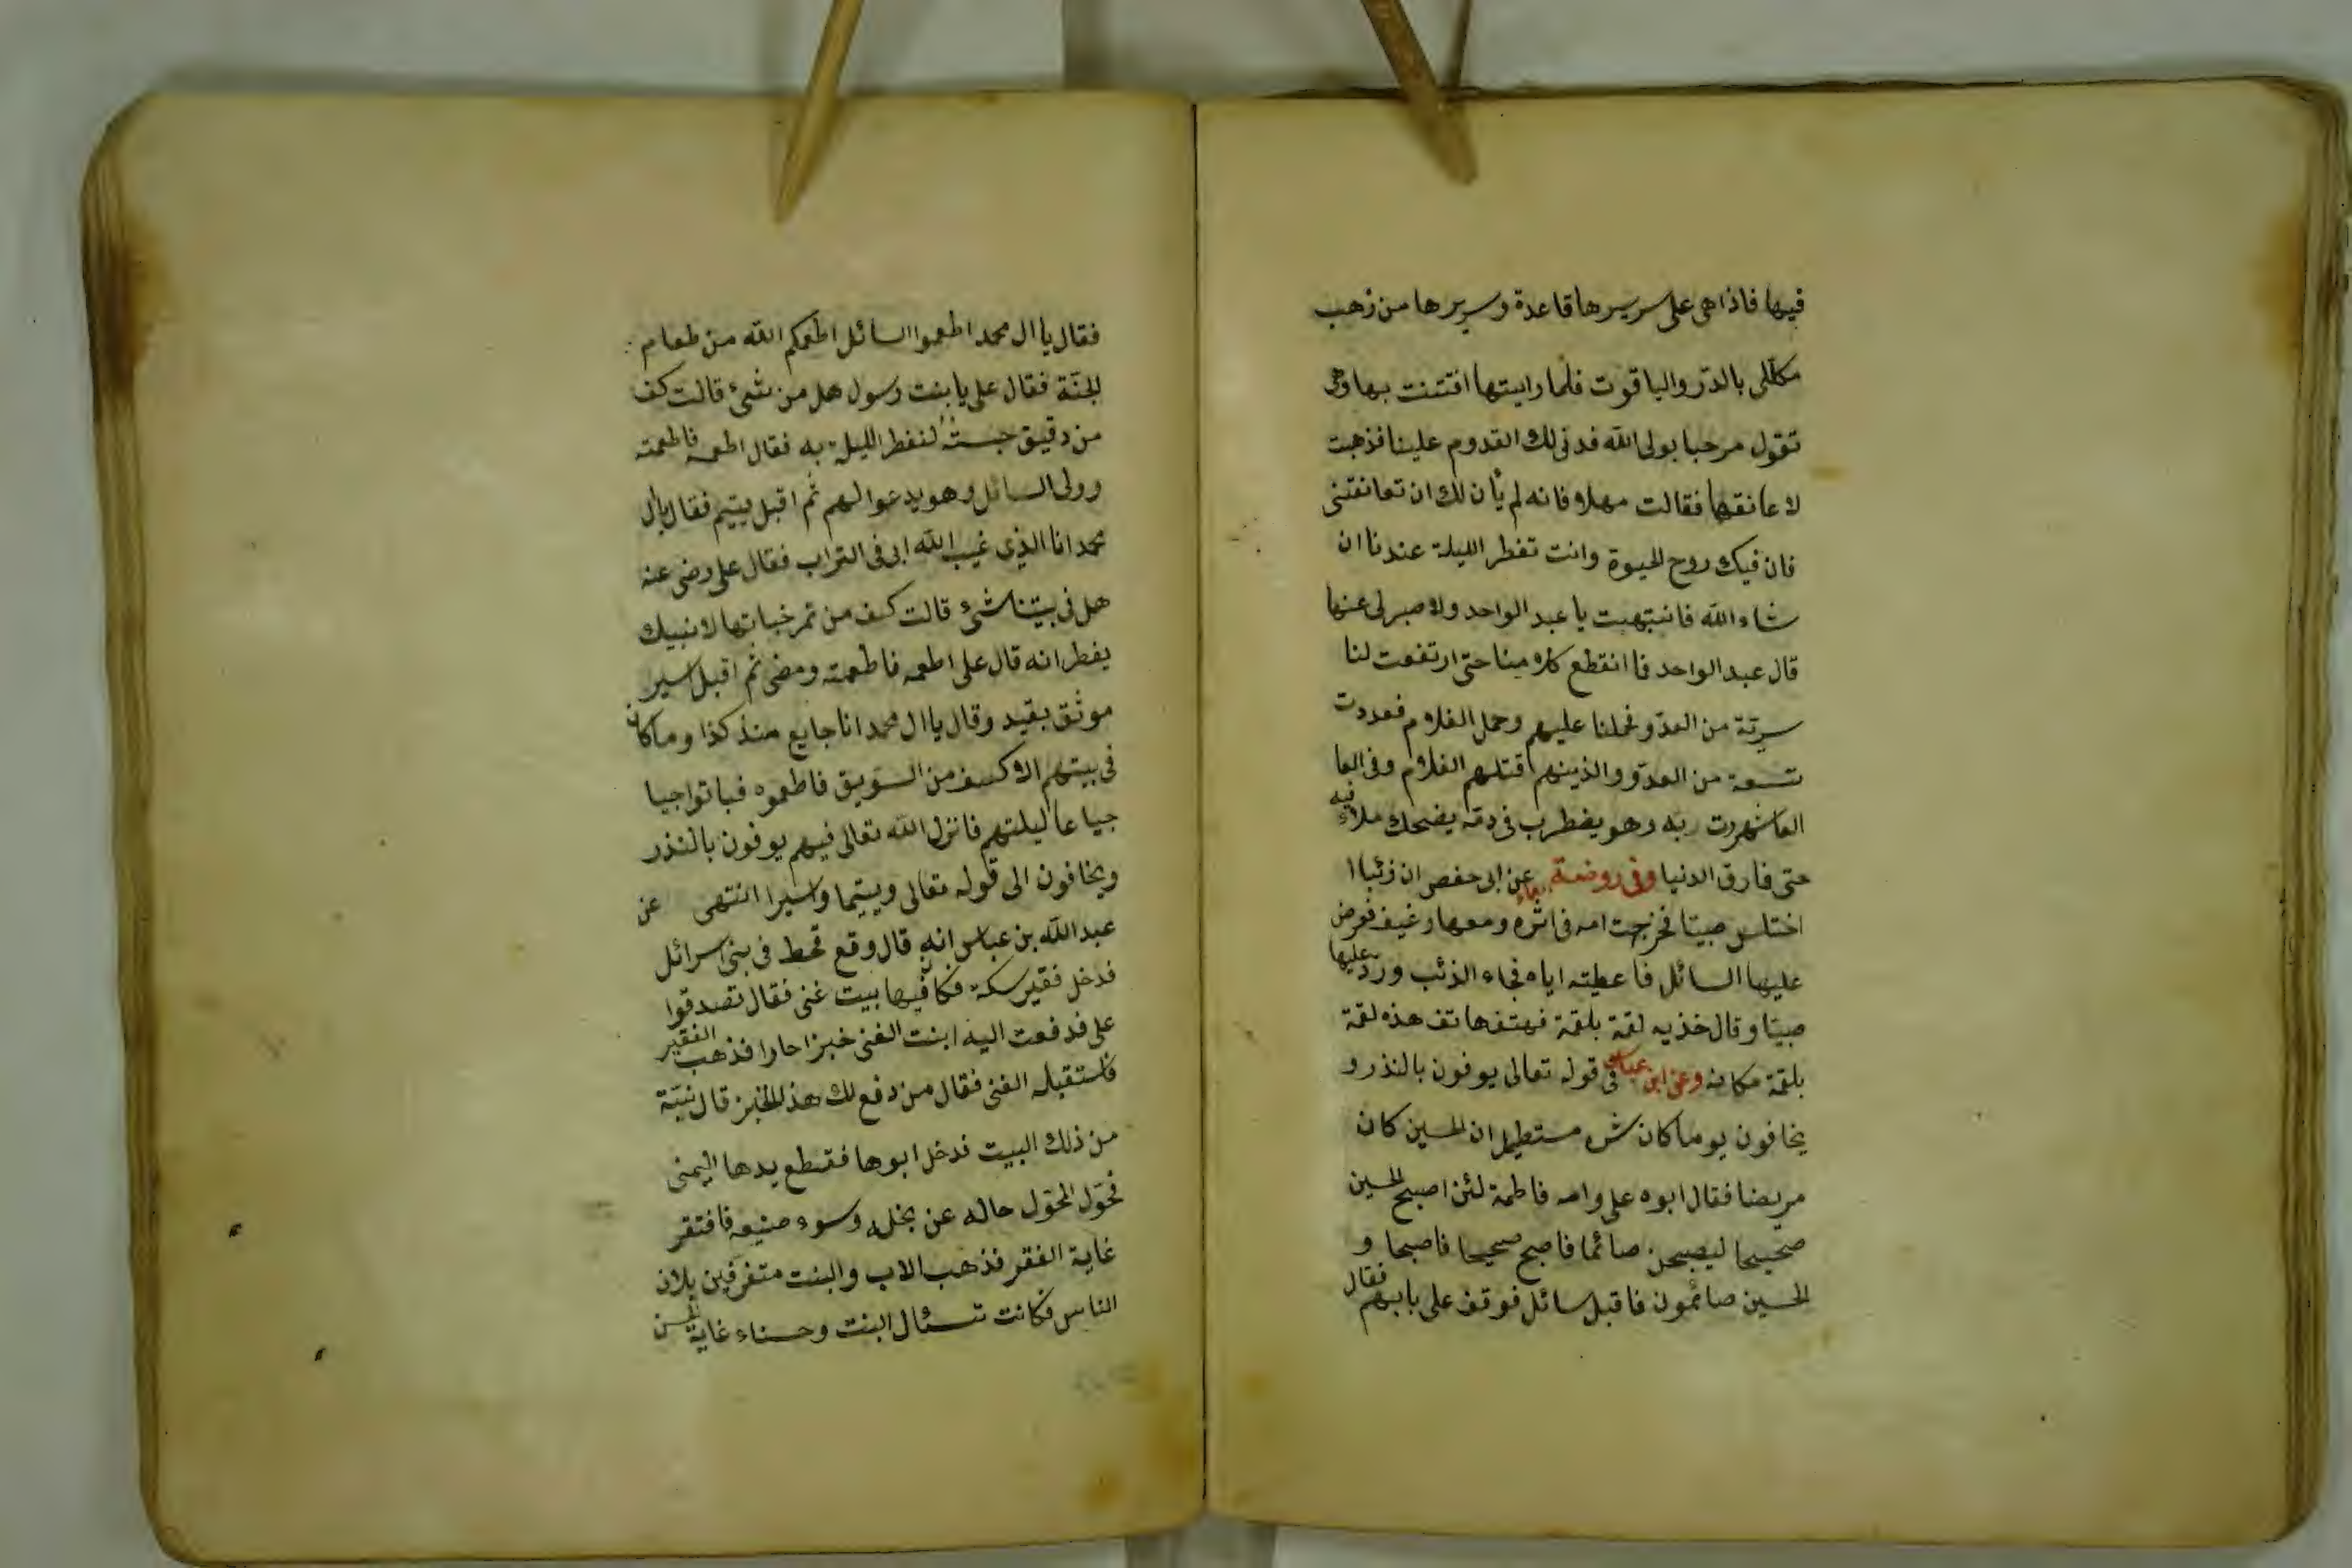 فيها فاذا هى على سريرها قاعدة وسريرها من ذهب
مكللى بالدّر والياقوت فلما رايتها افتتنت بها وهى
تقول مرحبا بولى الله قد نى لك القدوم علينا فذهبت
لا عانقها فقالت مهلا فانه لم يأن لك ان تعانقنى
فان فيك روح الحيوة وانت تفطر الليلة عندنا ان
شاء الله فانتبهت يا عبد الواحد ولا صبر لى عنها
قال عبد الواحد فا انقطع كلامنا حتى ارتفعت لنا
سرية من العدو فحملنا عليهم وحمل الغلام فعددت
تسعة من العدو والذينهم قتلهم الغلام وفى العا
العاشر مررت به وهو يضطرب فى دمه يضحك ملأ فيه
حتى فارق الدنيا وفى روضة عن ابى حفص ان ذئبا ا
اختلس صبيّا فخرجت امه فى اثره ومعها رغيف فعرض
عليها السائل فاعطيته اياه فجاء الذئب ورد عليها
صبيّا وقال خذيه لقمة بلقمة فهتف هاتف هذه لقمة
بلقمة مكانه وعن ابن عباس فى قوله تعالى يوفون بالنذر و
يخافون يوما كان شره مستطيرا ان الحسين كان
مريضا فقال ابوه على وامه فاطمة لئن اصبح الحسين
صحيحا ليصبحن صائما فاصبح صحيحا فاصبحا و
الحسين صائمون فاقبل سائل فوقف على بابهم فقال
فقال يا ال محمد اطعموا السائل اطعمكم الله من طعام
الجنّة فقال على يا بنت رسول هل من شئ قالت كف
من دقيق لنفطر الليلة به فقال اطعمه فاطعمته
وولى السائل وهو يدعوا لهم ثم اقبل يتيم فقال يا ال
محمد انا الذى غيب الله ابى فى التراب فقال على رضى عنه
هل فى بيتنا شئ قالت كف من تمر خباتها لابنيك
يفطرانه قال على اطعمه فاطعمته ومضى ثم اقبل اسير
موثق بقيد وقال يا ال محمد انا جايع منذ كذا وما كان
فى بيتهم الا كف من السويق فاطعموه فباتوا جيا
جياعا ليلتهم فانزل الله تعالى فيهم يوفون بالنذر
ويخافون الى قوله تعالى ويتيما واسيرا انتهى عن
عبد الله بن عباس انه قال وقع قحط فى بنى اسرائل
فدخل فقير سكة فكان فيها بيت غنى فقال تصدقوا
على فدفعت اليه ابنت الغنى خبزا حارا فذهب الفقير
فاستقبله الغنى فقال من دفع لك هذ الخبز قال بنيّة
من ذلك البيت فدخل ابوها فقطع يدها اليمنى
فحوّل المحوّل حاله عن بخله وسوء صنيعه فافتقر
غاية الفقر فذهب الاب والبنت متفرقين
الناس فكانت تسئال البنت وحسناء غاية الحسن